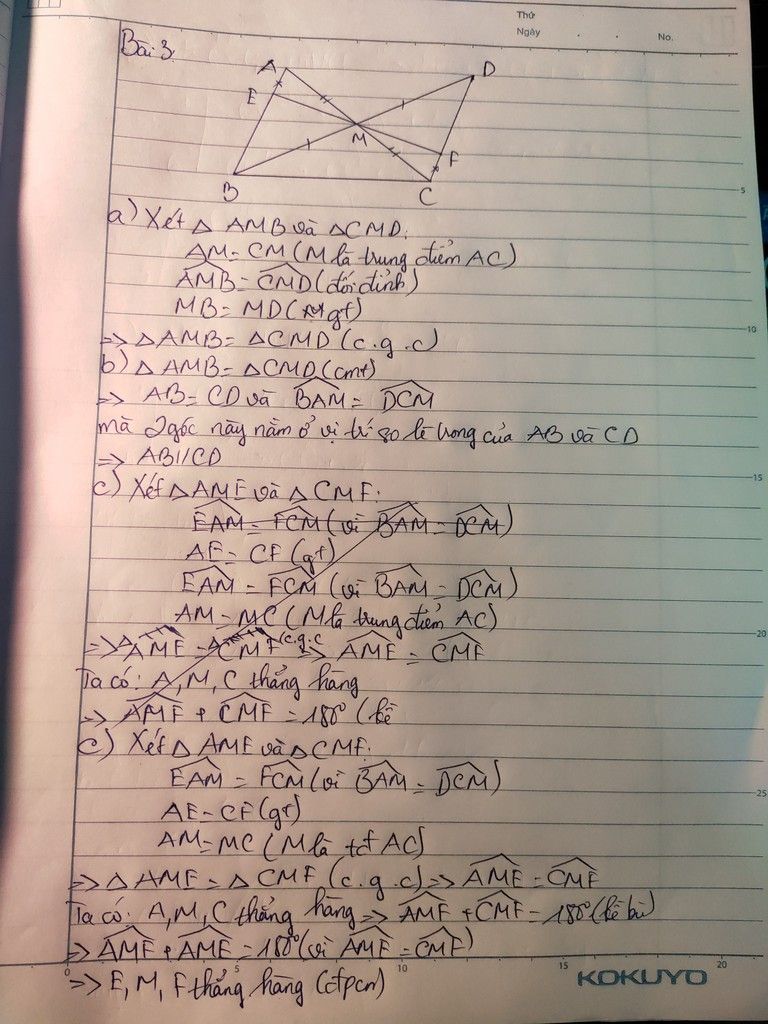 Thứ
Ngày . . No.
Bài 3.
A
D
E
M
F
B
C
a) Xét △ AMB và △CMD:
AM = CM (M là trung điểm AC)
AMB = CMD (đối đỉnh)
MB = MD (gt)
=> △AMB = △CMD (c.g.c)
b) △AMB = △CMD (cmt)
=> AB = CD và BAM = DCM
mà 2 góc này nằm ở vị trí so le trong của AB và CD
=> AB//CD
c) Xét △AME và △CMF:
EAM = FCM (vì BAM = DCM)
AE = CF (gt)
EAM = FCM (vì BAM = DCM)
AM = MC (M là trung điểm AC)
=> △AME = △CMF (c.g.c) => AME = CMF
Ta có: A, M, C thẳng hàng
=> AMF + CMF = 180° (kề
c) Xét △ AME và △CMF:
EAM = FCM (vì BAM = DCM)
AE = CF (gt)
AM = MC (M là tđ AC)
=> △ AME = △ CMF (c.g.c) => AME = CMF
Ta có: A, M, C thẳng hàng => AMF + CMF = 180° (kề bù)
=> AMF + AME = 180° (vì AME = CMF)
=> E, M, F thẳng hàng (đpcm)
5
10
15
20
25
0 5 10 15 20
KOKUYO